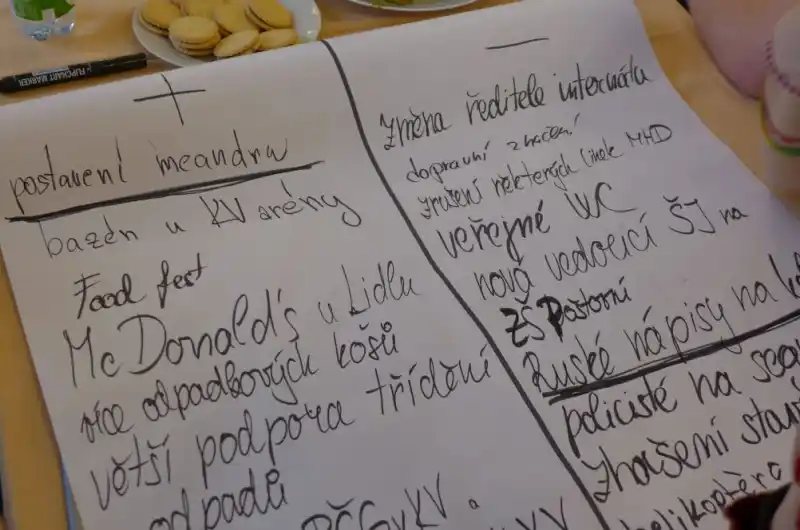 FLIPCHART MARKER
+
postavení meandru
bazén u KV arény
Food fest
McDonald's u Lidlu
více odpadkových košů
větší podpora třídění
odpadů
KV a
—
změna ředitele internátu
dopravní značení
zrušení některých linek MHD
veřejné WC
nová vedoucí ŠJ na
ZŠ Poštovní
Ruské nápisy na
policisté na
zhoršení